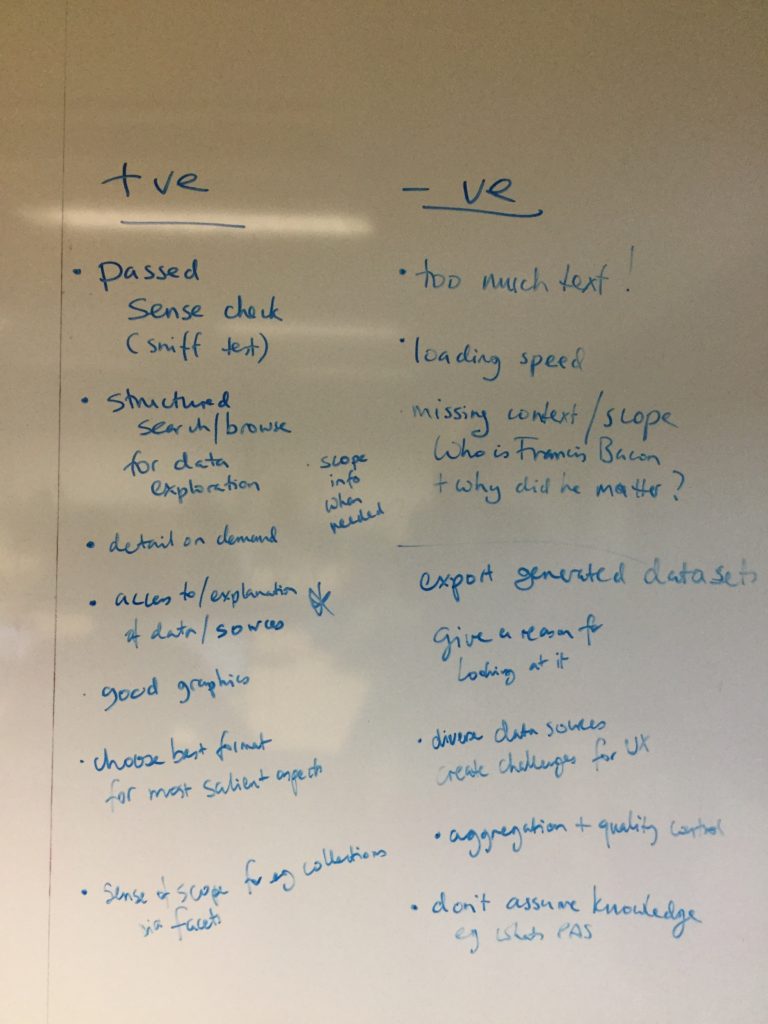 +ve
• passed
sense check
(sniff test)
• structured
search/browse
for data
exploration
• scope
info
when
needed
• detail on demand
• access to/explanation
of data/sources
• good graphics
• choose best format
for most salient aspects
• sense of scope for eg collections
via facets
- ve
• too much text!
• loading speed
• missing context/scope
Who is Francis Bacon
+ why did he matter?
export generated datasets
Give a reason for
looking at it
• diverse data sources
create challenges for UX
• aggregation + quality control
• don't assume knowledge
eg whats PAS